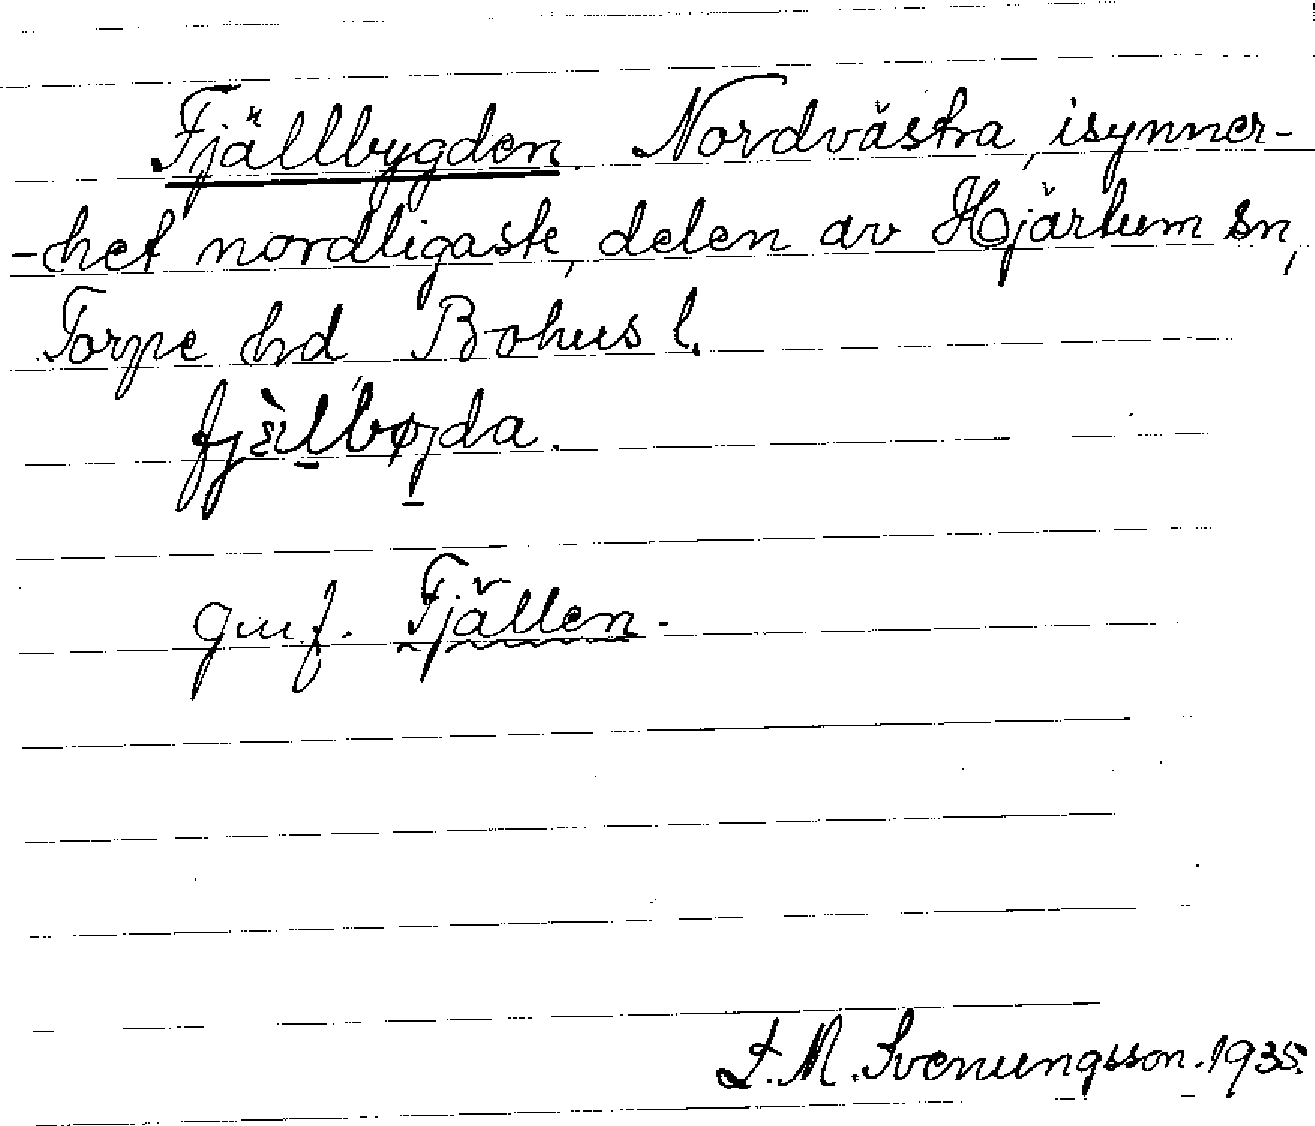 Fjällbygden. Nordvästra, isynner-
-het nordligaste, delen av Hjärtum sn,
Torpe hd, Bohus l.
fjällbøjda.
jmf. Fjällen.
L. M. Svenungsson. 1935.